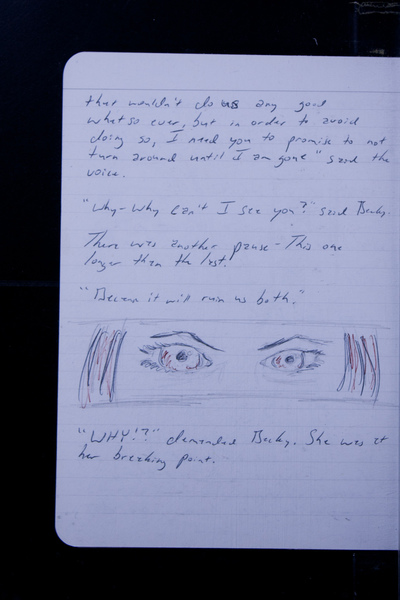 that wouldn't do us any good
what so ever, but in order to avoid
doing so, I need you to promise to not
turn around until I am gone" said the
voice.
"Why-Why can't I see you?" said Becky.
There was another pause - This one
longer than the last.
"Because it will ruin us both."
"WHY!?" demanded Becky. She was at
her breaking point.